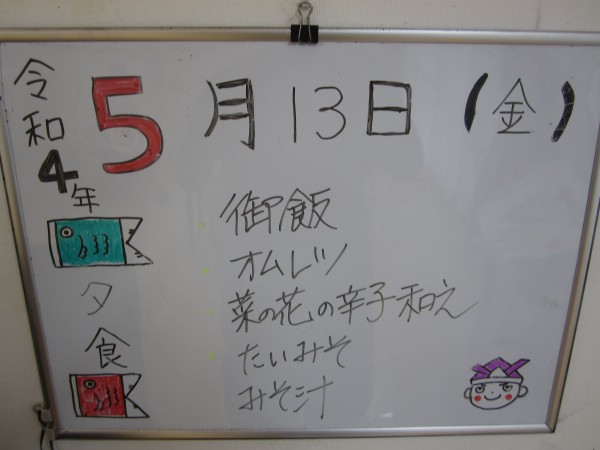 令和4年
5月13日(金)
夕食
御飯
オムレツ
菜の花の辛子和え
たいみそ
みそ汁